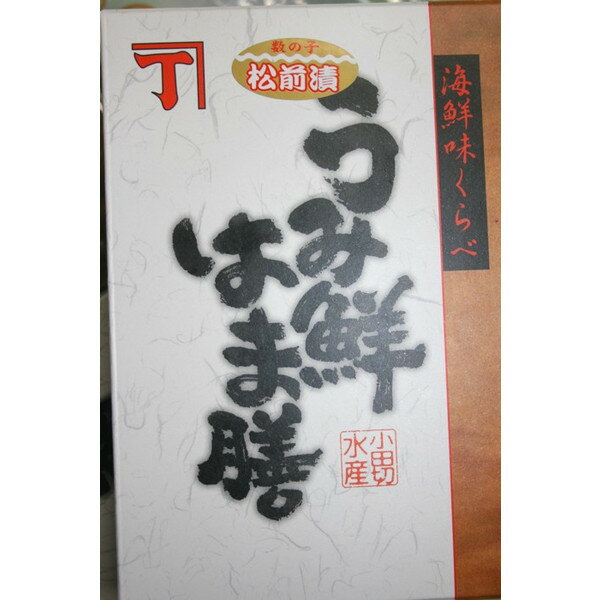 海鮮味くらべ
数の子
松前漬
うみ鮮
はまま膳
小田切
水産